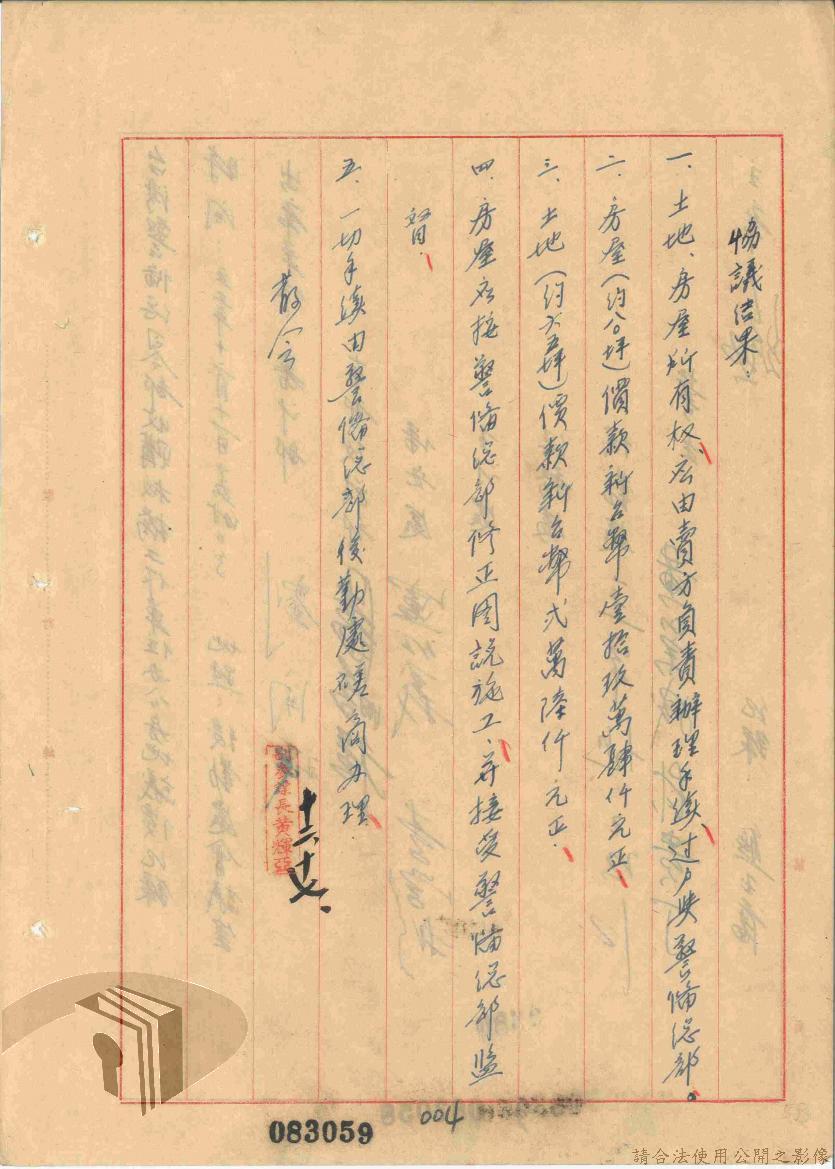 協議結果：
一、土地、房屋所有权、应由賣方負責辦理手續过户與警備总部。
二、房屋（約八〇坪）價款新台幣壹拾玖萬肆仟元正、
三、土地（約六五坪）價款新台幣弍萬陸仟元正、
四、房屋应接警備总部修正圖說施工、并接受警備总部監
督、
五、一切手續由警備总部後勤處磋商办理、
散会
副參謀長黃輝亞
十二、十七、
083059
004
請合法使用公開之影像